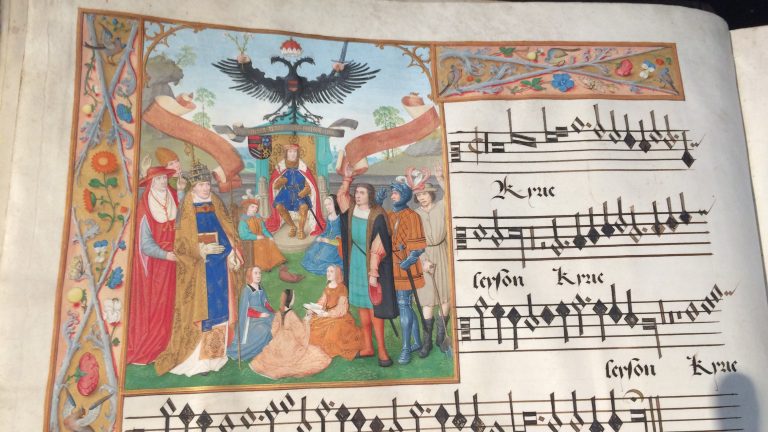 Kyrie
leyson Kyrie
leyson Kyrie